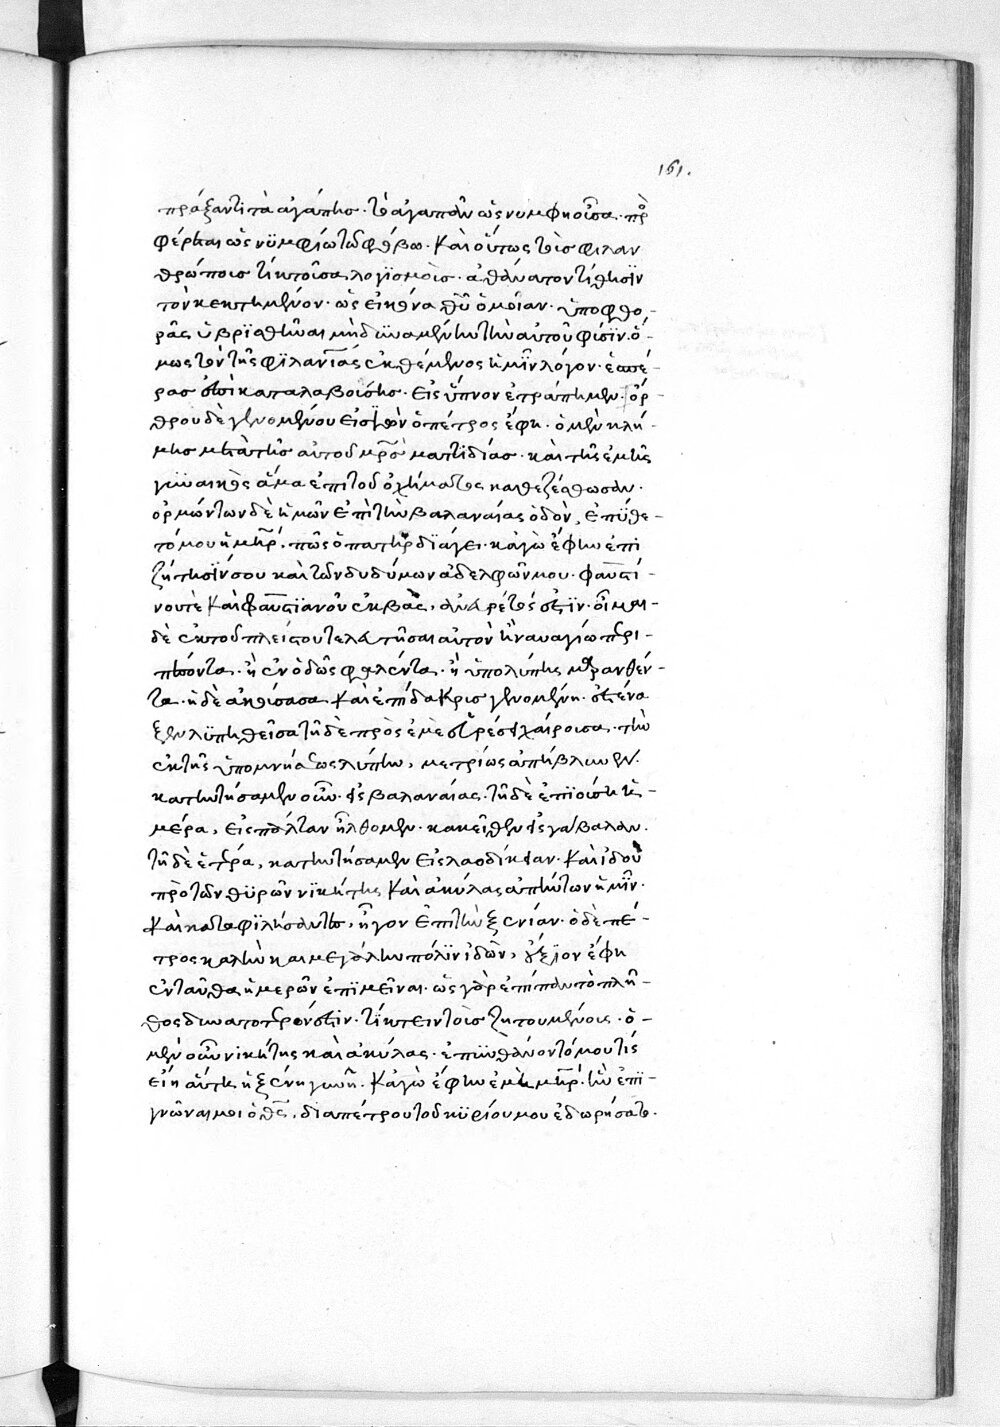 161.
πράξαντι τὰ ἀγάπης. τὸ ἀγαπᾶν ὡς νυμφη οὖσα. πρ
φέρεται ὡς νϋμφίω τῶ φόβω. Καὶ οὕτως τοῖσ φιλαν
θρώποισ τίκτουσα λογϊσμοῖσ. ἀθάνατον τίθησϊν
τὸν κεκτημένον. ὡς εἰκόνα θῦ ὁμοίαν. ὑπο φθο-
ρᾶς ὑβρϊσθῆναι μὴ δϋναμένην τὴν αὐτοῦ φύσϊν. ὁ-
μως τὸν τῆς φϊλανίας ἐκθέμενος ἡμῖν λόγον. ἑσπέ
ρασ καταλαβούσησ. εἰς ὕπνον ἐτράπημεν. ὄρ-
θρου δὲ γενομένου εἰσϊὼν ὁ πέτρος ἔφη. ὁ μὲν κλή-
μησ μετὰ τῆσ αὐτοῦ μρσ ματτιδίασ. καὶ τῆς ἐμῆς
γϋναικὸς ἅμα ἐπι τοῦ ὀχήματος καθεζέσθωσαν.
ὁρμώντων δὲ ἡμῶν ἐπὶ τὴν βαλαναίας ὁδὸν, ἐπύθε-
τό μου ἡ μηρ, πῶς ὁ πατὴρ δϊάγει. κἀγὼ ἔφην ἐπι
ζήτησϊν σου καὶ τῶν δυδύμων ἀδελφῶν μου. φαυστί-
νου τὲ Καὶ φαυστϊανοῦ ἐκβὰς, ἀνεύρετός ἐστϊν. οἶμαι-
δὲ ἐκ τοῦ πλείστου τελευτῆσαι αὐτὸν ἢ ναυαγίω περι-
πεσόντα. ἢ ἐν ὁδῶ σφαλέντα. ἢ ὑπο λύπης μαρανθέν-
τα. ἡ δὲ ἀκούσασα Καὶ ἐπίδακρισ γενομένη. ἐστένα
ξεν λϋπηθεῖσα τῆ δὲ πρὸς ἐμὲ χαίρουσα. τὴν
ἐκ τῆς ὑπομνήσεως λύπην, μετρίως ἀπήβλυνεν.
κατηντήσαμεν οὖν. εἰς βαλαναίας. τῆ δὲ ἐπιούση ἡ-
μέρα, εἰς πάλταν ἤλθομεν. κακεῖθεν εἰς γάβαλαν.
τῆ δὲ ἑτέρα, κατηντήσαμεν εἰς λαοδίκειαν. Καὶ ἰδοὺ
πρὸ τῶν θϋρῶν νϊκήτης Καὶ ἀκύλας ἀπήντων ἡμῖν.
Καὶ καταφϊλήσαντες, ἦγον ἐπι τὴν ξενίαν. ὁ δὲ πέ-
τρος καλὴν καὶ μεγάλην πόλϊν ἰδὼν, ἄξϊον ἔφη
ἐνταῦθα ἡμερῶν ἐπϊμεῖναι. ὡς γὰρ ἐπίπαν τὸ πλῆ-
θος δυνατότερόν ἐστϊν. τίκτειν τοῖσ ζητουμένοις. ὁ-
μὲν οὖν νικήτης καὶ ἀκύλας. ἐπυνθάνοντό μου τίς
εἴη αὕτη ἡ ξένη γυνή. Καγὼ ἔφην ἐμὴ μηρ. ἣν ἐπϊ-
γνῶναι μοι ὁ θς, διὰ πέτρου τοῦ κϋρίου μου ἐδωρήσατο.